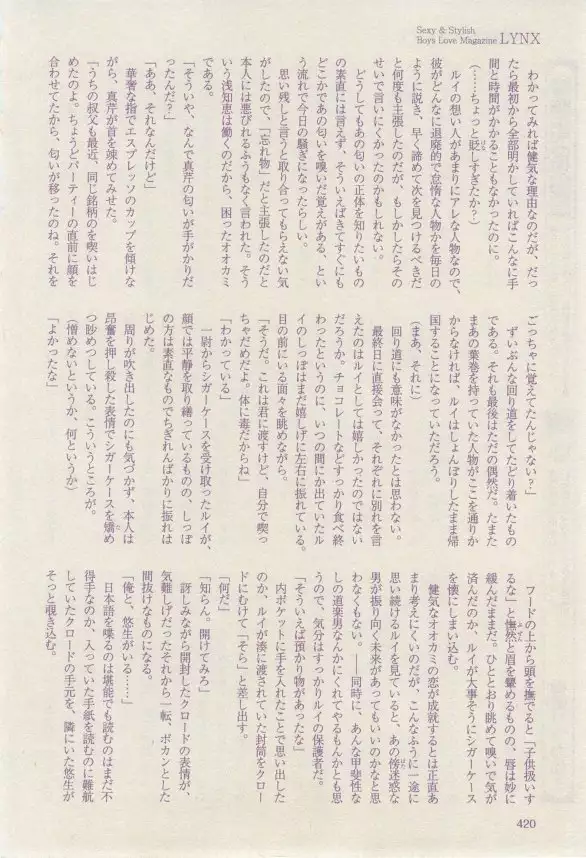 Sexy & Stylish
Boys Love Magazine LYNX
わかってみれば健気な理由なのだが、だっ
たら最初から全部明かしていればこんなに手
間と時間がかかることもなかったのに。
(……ちょっと貶しすぎたか?)
ルイの想い人があまりにアレな人物なので、
彼がどんなに退廃的で怠惰な人物かを毎日の
ように説き、早く諦めて次を見つけるべきだ
と何度も主張したのだが、もしかしたらその
せいで言いにくかったのかもしれない。
どうしてもあの匂いの正体を知りたいもの
の素直には言えず、そういえばきてすぐにも
どこかであの匂いを嗅いだ覚えがある、とい
う流れで今日の騒ぎになったらしい。
思い残しと言うと取り合ってもらえない気
がしたので、「忘れ物」だと主張したのだと
本人には悪びれるふうもなく言われた。そう
いう浅知恵は働くのだから、困ったオオカミ
である。
「そういや、なんで真芹の匂いが手がかりだ
ったんだ?」
「ああ、それなんだけど」
華奢な指でエスプレッソのカップを傾けな
がら、真芹が首を竦めてみせた。
「うちの叔父も最近、同じ銘柄のを喫いはじ
めたのよ。ちょうどパーティーの直前に顔を
合わせてたから、匂いが移ったのね。それを
ごっちゃに覚えてたんじゃない?」
ずいぶんな回り道をしてたどり着いたもの
である。それも最後はただの偶然だ。たまた
まあの葉巻を持っていた人物がここを通りか
からなければ、ルイはしょんぼりしたまま帰
国することになっていただろう。
(まあ、それに)
回り道にも意味がなかったとは思わない。
最終日に直接会って、それぞれに別れを言
えたのはルイとしては嬉しかったのではない
だろうか。チョコレートなどすっかり食べ終
わったというのに、いつの間にか出ていたル
イのしっぽはまだ嬉しげに左右に振れている。
目の前にいる面々を眺めながら。
「そうだ。これは君に渡すけど、自分で喫っ
ちゃだめだよ。体に毒だからね」
「わかっている」
一尉からシガーケースを受け取ったルイが、
顔では平静を取り繕っているものの、しっぽ
の方は素直なものでちぎれんばかりに振れは
じめた。
周りが吹き出したのにも気づかず、本人は
昂奮を押し殺した表情でシガーケースを矯め
つ眇めつしている。こういうところが。
(憎めないというか、何というか)
「よかったな」
フードの上から頭を撫でると「子供扱いす
るな」と憮然と眉を顰めるものの、唇は妙に
緩んだままだ。ひととおり眺めて嗅いで気が
済んだのか、ルイが大事そうにシガーケース
を懐にしまい込む。
健気なオオカミの恋が成就するとは正直あ
まり考えにくいのだが、こんなふうに一途に
思い続けるルイを見ていると、あの傍迷惑な
男が振り向く未来があってもいいのかなと思
わなくもない。――同時に、あんな甲斐性な
しの道楽男なんかにくれてやるもんかとも思
うので、気分はすっかりルイの保護者だ。
「そういえば預かり物があったな」
内ポケットに手を入れたことで思い出した
のか、ルイが湊に渡されていた封筒をクロー
ドにむけて「そら」と差し出す。
「何だ」
「知らん。開けてみろ」
訝しみながら開封したクロードの表情が、
気難しげだったそれから一転、ポカンとした
間抜けなものになる。
「俺と、悠生がいる……」
日本語を喋るのは堪能でも読むのはまだ不
得手なのか、入っていた手紙を読むのに難航
していたクロードの手元を、隣にいた悠生が
そっと覗き込む。
420